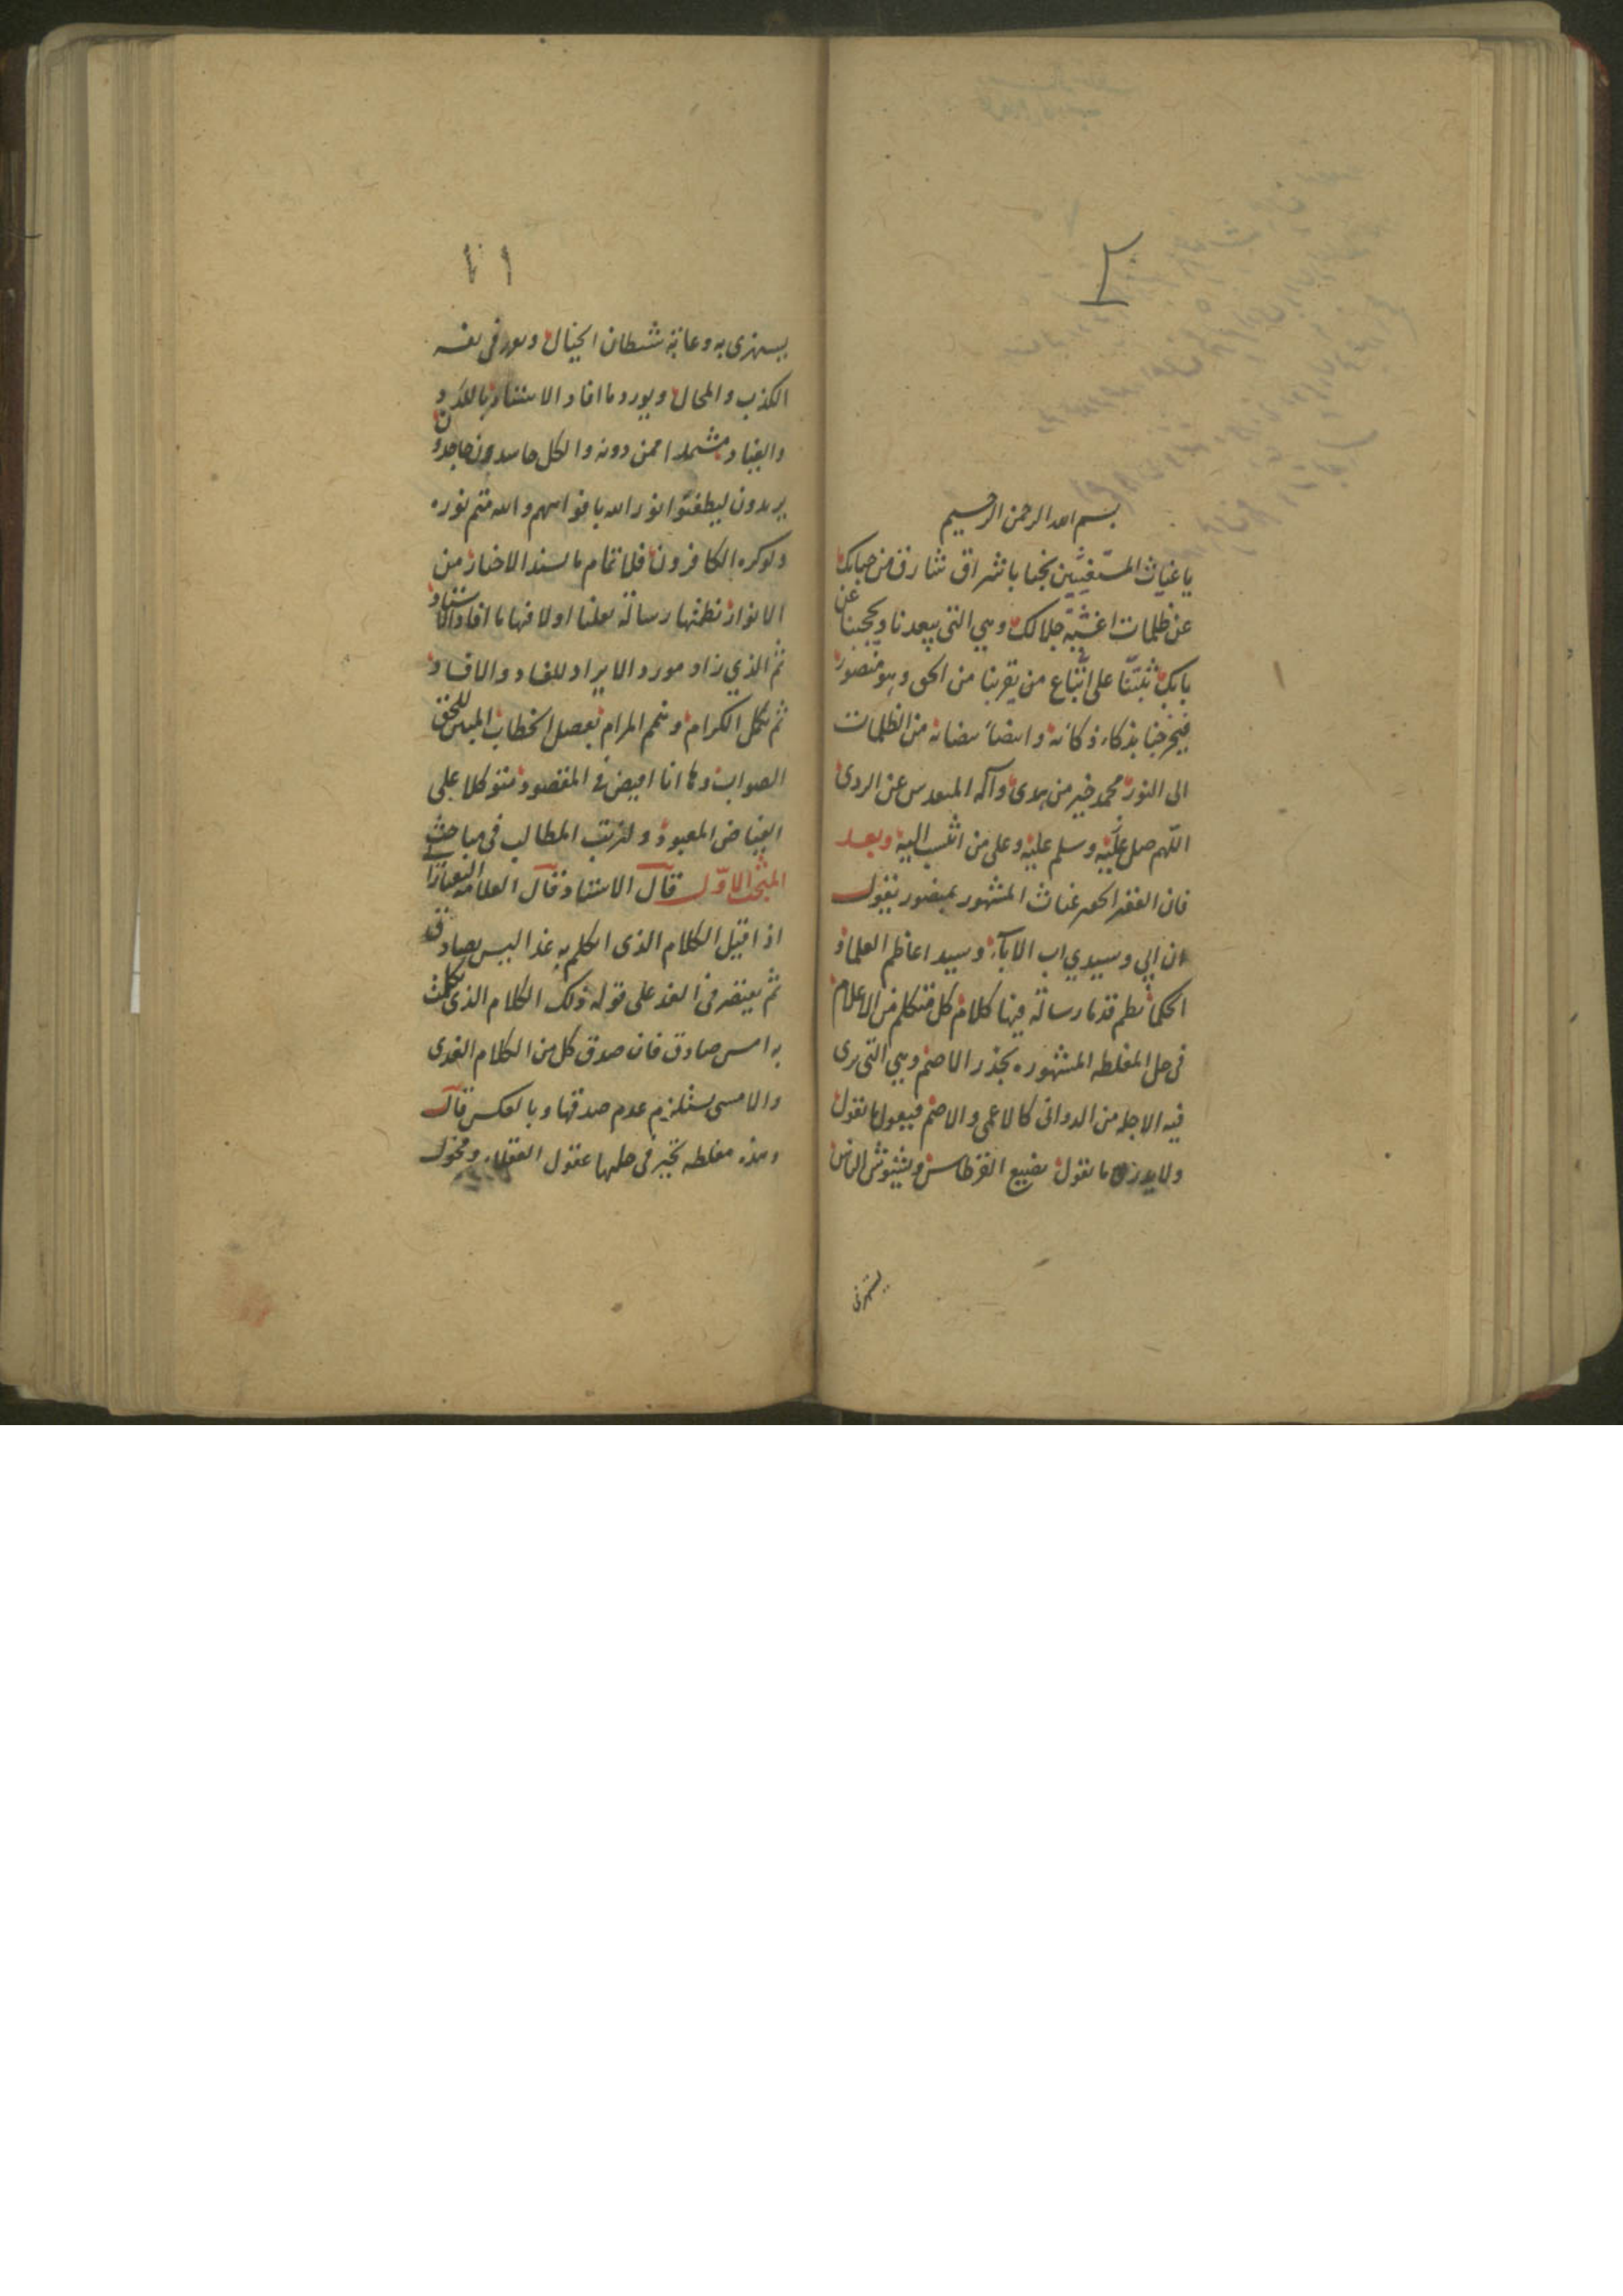 ٢
بسم الله الرحمن الرحيم
يا غياث المستغيثين نجنا باشراق شارق من جبابك
عن ظلمات اغشية جلالك وهي التي تبعدنا وتحجبنا عن
بابك ثبتنا على اتباع من يقربنا من الحق وهو منصور
فيخرجنا بذكاء ذكائه من الظلمات
الى النور محمد خير من هدى وآله المقدس عن الردى
اللهم صل عليه وسلم عليه وعلى من انتسب اليه وبعد
فان الفقير الحقير غياث المشهور بمنصور يقول
ان ابي وسيدي اب الاباء وسيد اعاظم العلماء
الحكماء نظم قدما رسالة فيها كلام كل متكلم من الاعلام
في حل المغلطه المشهوره بجذر الاصم وهي التي يرى
فيه الاجله من الدواني كالاعمى والاصم فيقول ما تقول
ولا يدري ما تقول يضيع القرطاس ويشوش الناس
يستهزئ
١٠١
يستهزئ به وغاية شيطان الخيال في نفسه
الكذب والمحال ويورد ما افاد الاستناد
والعناد ممن دونه والكل حاسدون جاحدون
يريدون ليطفئوا نور الله بافواههم والله متم نوره
ولوكره الكافرون من
الانوار نظمتها رسالة نقلنا اولا فيها ما افاد الاستناد
ثم الذي زاد مورد الايراد للفساد والافساد
ثم نكمل الكرام ونتم المرام بفصل الخطاب المبين للحق
الصواب وها انا افيض في المقصود متوكلا على
الفياض المعبود ولنرتب المطالب في مباحث
المبحث الاول قال الاستناد قال العلامه التفتازاني
اذا قيل الكلام الذي اتكلم به غدا ليس بصادق
ثم يقتصر في الغد على قوله ذلك الكلام الذي تكلمت
به امس صادق فان صدق كل من الكلام الغدي
والامسي يستلزم عدم صدقها وبالعكس قال
وهذه مغلطه تحير في حلها عقول العقلاء وفحول